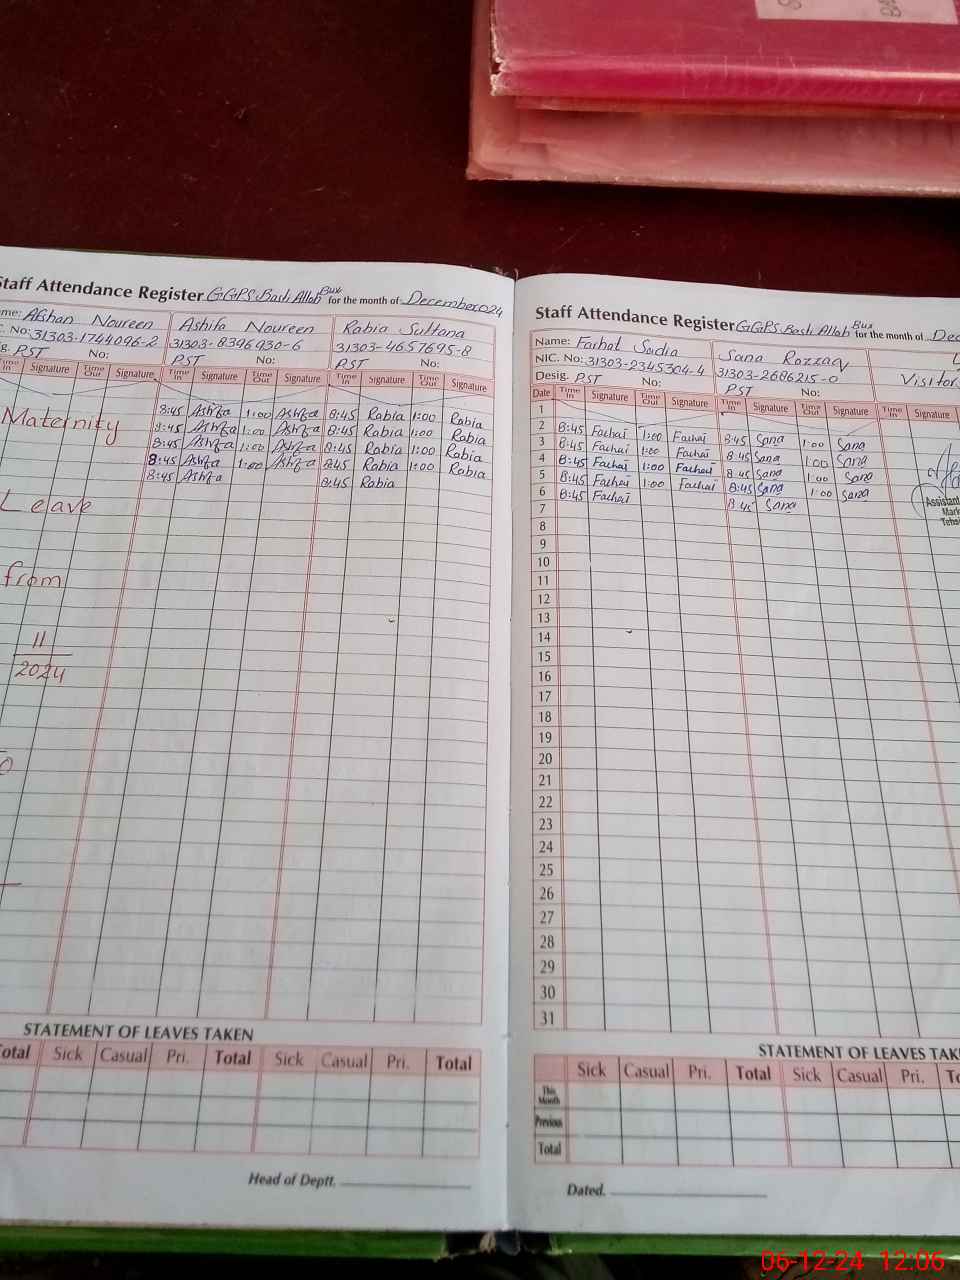 Staff Attendance Register GGPS. Basti Allah Bux for the month of December 024
Name: Afshan Noureen
Ashifa Noureen
Rabia Sultana
NIC. No: 31303-1744096-2
31303-8396930-6
31303-4657695-8
Desig. PST No:
PST No:
PST No:
Time In Signature Time Out Signature Time In Signature Time Out Signature Time In Signature Time Out Signature
8:45 Ashifa 1:00 Ashifa 8:45 Rabia 1:00 Rabia
8:45 Ashifa 1:00 Ashifa 8:45 Rabia 1:00 Rabia
8:45 Ashifa 1:00 Ashifa 8:45 Rabia 1:00 Rabia
8:45 Ashifa 1:00 Ashifa 8:45 Rabia 1:00 Rabia
8:45 Ashifa 8:45 Rabia
Maternity
Leave
from
11
2024
STATEMENT OF LEAVES TAKEN
Total Sick Casual Pri. Total Sick Casual Pri. Total
Head of Deptt.
Staff Attendance Register GGPS Basti Allah Bux for the month of Dec
Name: Farhat Sadia
Sana Razzaq
Visitor
NIC. No: 31303-2345304-4
31303-2686215-0
Desig. PST No:
PST No:
Date Time In Signature Time Out Signature Time In Signature Time Out Signature Time In Signature
1
2 8:45 Farhat 1:00 Farhat 8:45 Sana 1:00 Sana
3 8:45 Farhat 1:00 Farhat 8:45 Sana 1:00 Sana
4 8:45 Farhat 1:00 Farhat 8:45 Sana 1:00 Sana
5 8:45 Farhat 1:00 Farhat 8:45 Sana 1:00 Sana
6 8:45 Farhat 8:45 Sana
7
8
9
10
11
12
13
14
15
16
17
18
19
20
21
22
23
24
25
26
27
28
29
30
31
Assistant
STATEMENT OF LEAVES TAK
Sick Casual Pri. Total Sick Casual Pri. To
This Month
Previous
Total
Dated.
06-12-24 12:06